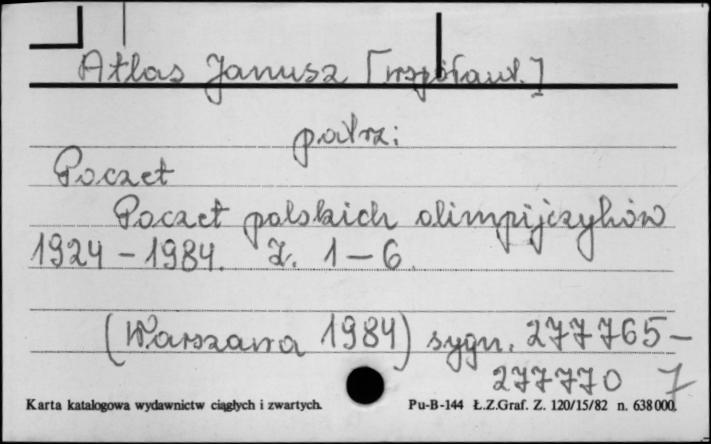 Atlas Janusz [współaut.]
patrz:
Poczet
Poczet polskich olimpijczyków
1924 – 1984. Z. 1 – 6.
(Warszawa 1984) sygn. 277765 –
277770 7
Karta katalogowa wydawnictw ciągłych i zwartych. Pu-B-144 Ł.Z.Graf. Z. 120/15/82 n. 638 000.